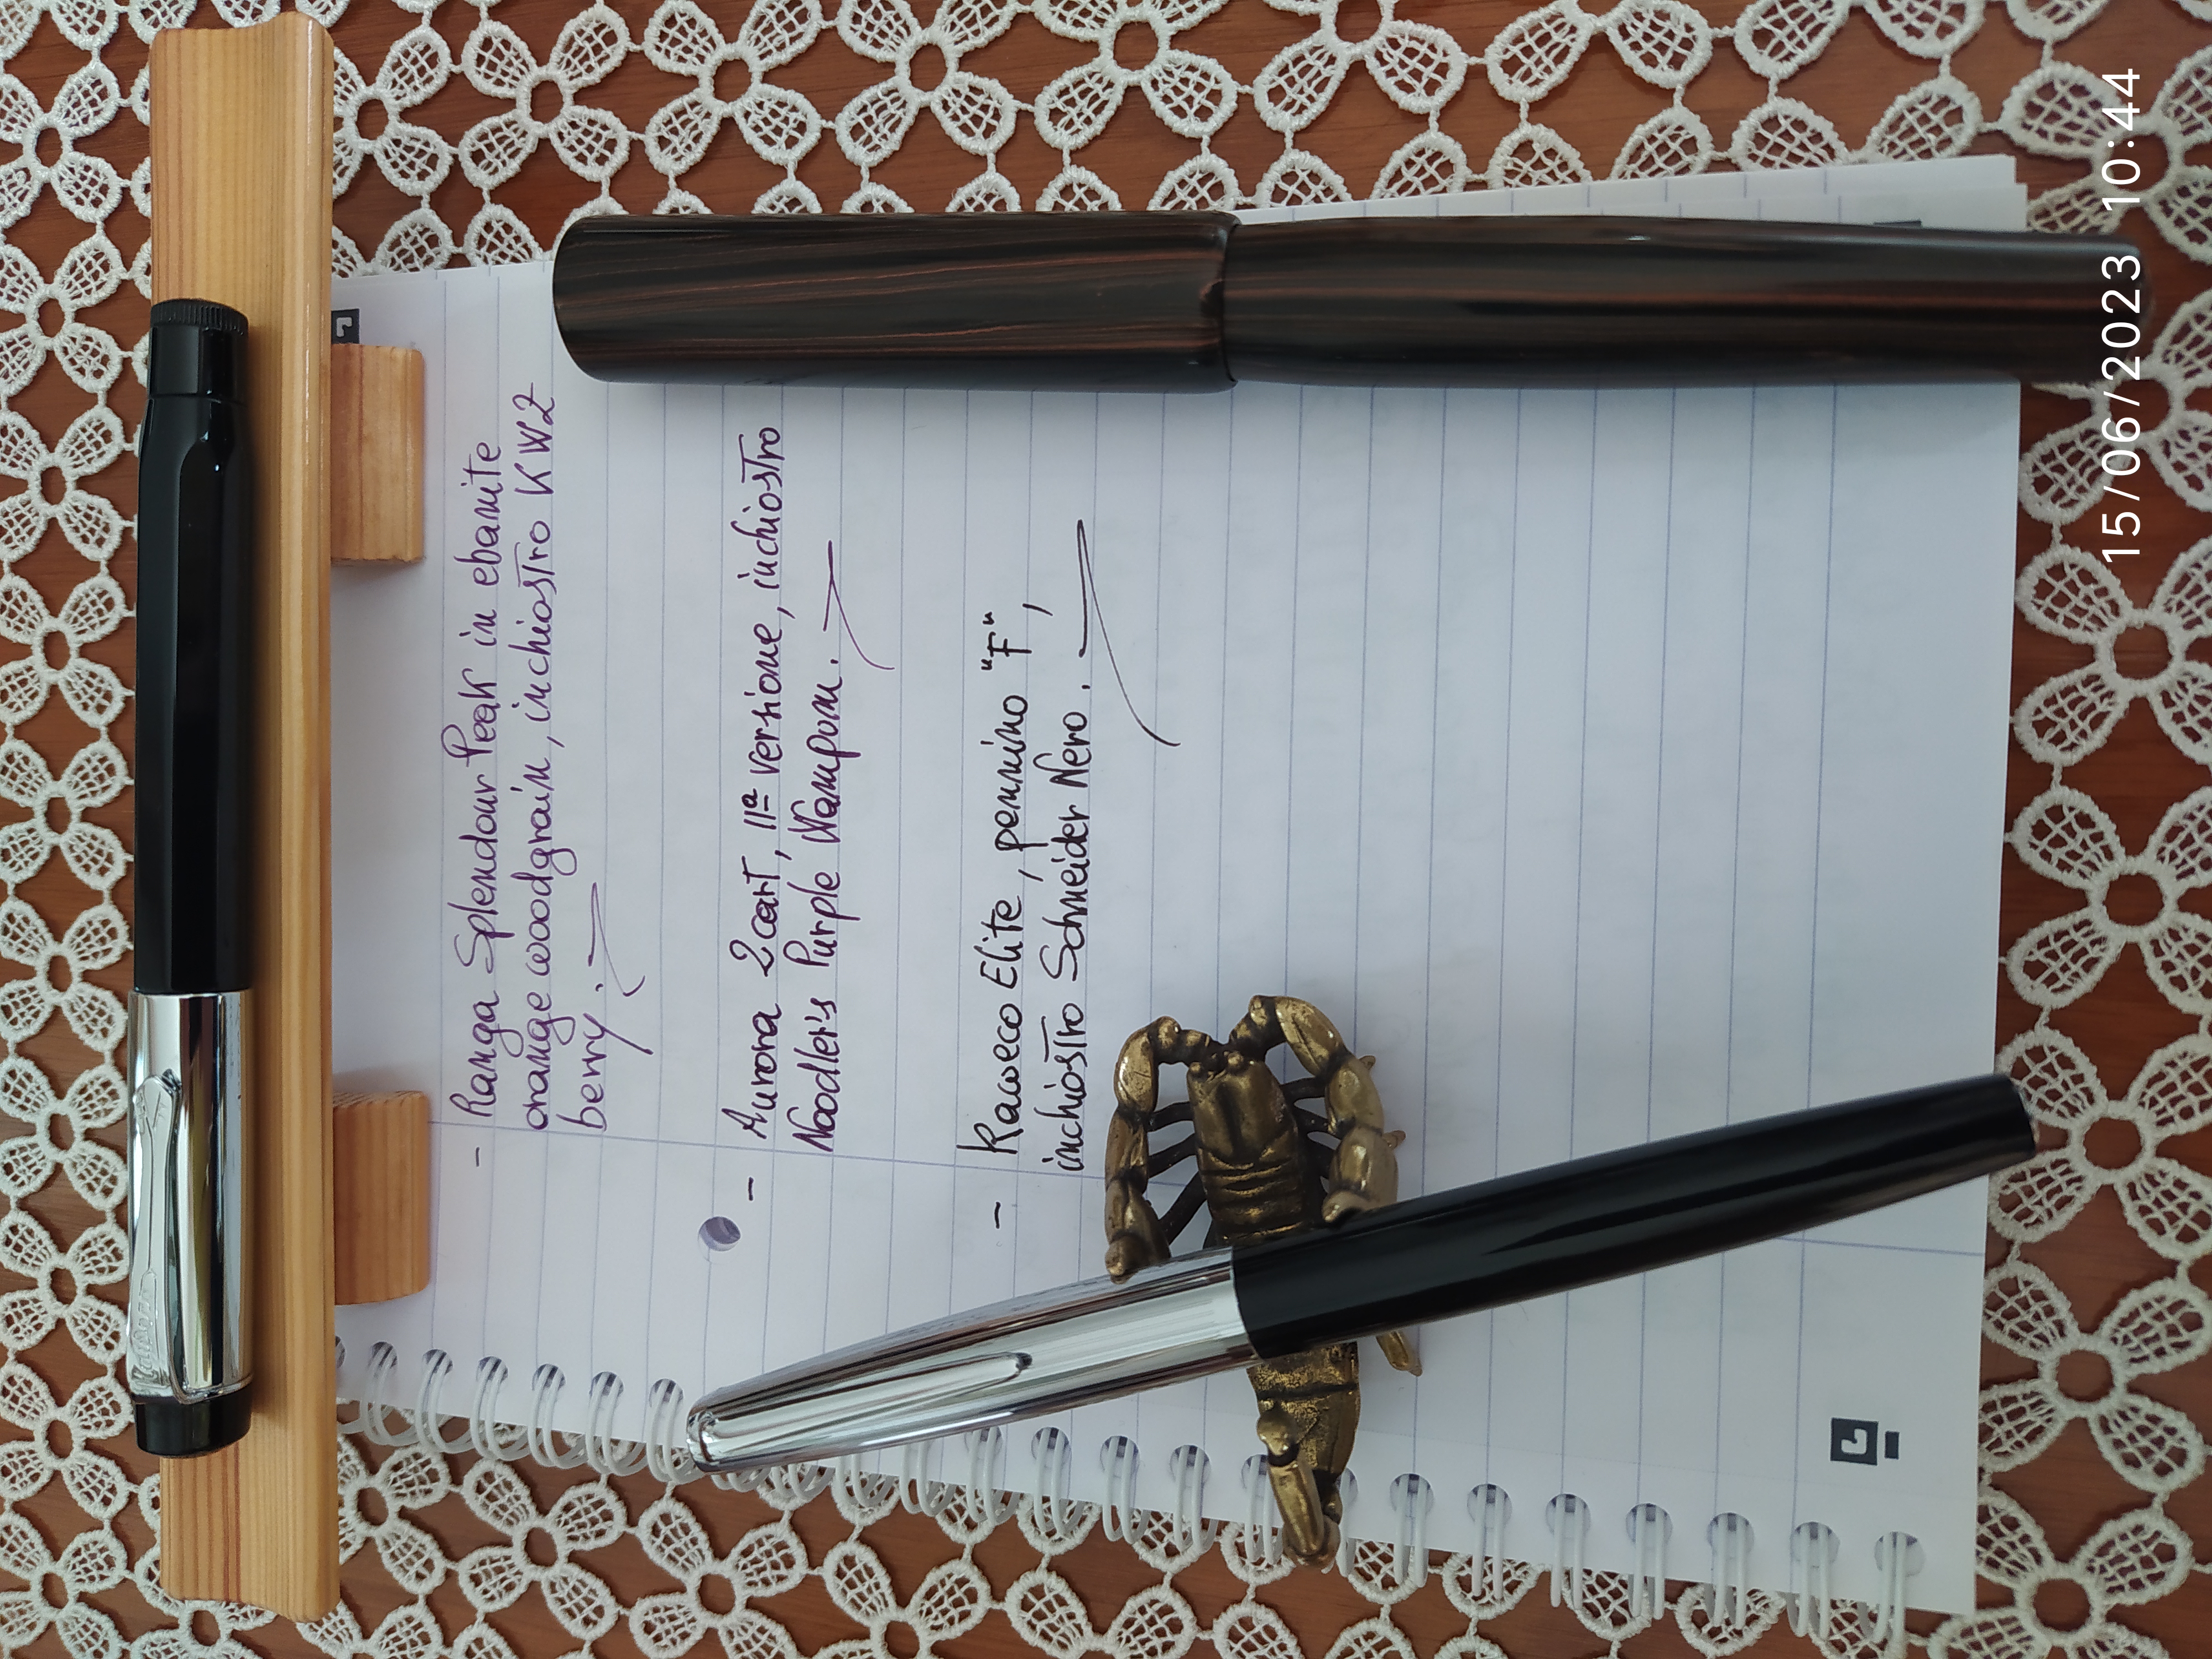 - Ranga Splendour Peak in ebanite
orange woodgrain, inchiostro KWZ
berry.
- Aurora 2cart, IIª versione, inchiostro
Noodler's Purple Wampum.
- Kaweco Elite, pennino "F",
inchiostro Schneider Nero.
Kaweco
15/06/2023 10:44